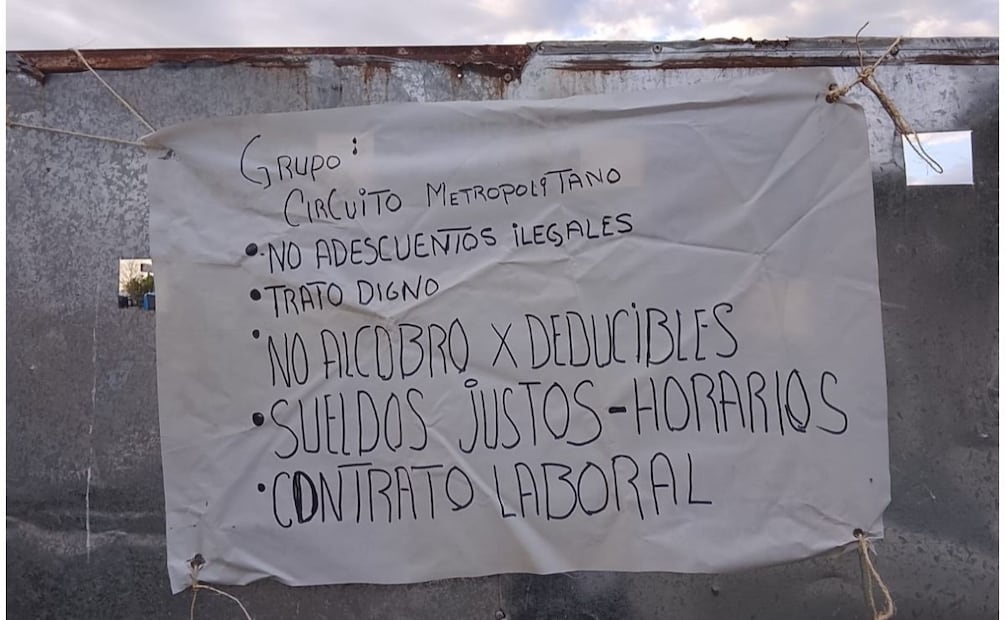 GRUPO:
CIRCUITO METROPOLITANO
•-NO ADESCUENTOS ILEGALES
•TRATO DIGNO
•NO ALCOBRO X DEDUCIBLES
•SUELDOS JUSTOS-HORARIOS
•CONTRATO LABORAL